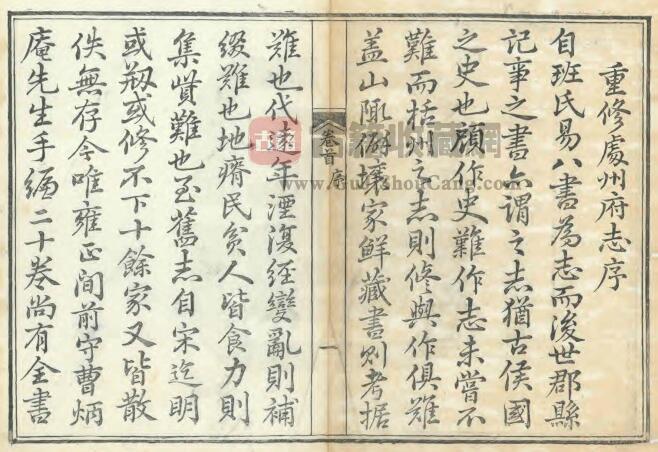 重修處州府志序
自班氏易八書為志而後世郡縣
記事之書亦謂之志猶古侯國
之史也顧作史難作志未嘗不
難而栝州之志則修與作俱難
盖山陬僻壤家鮮藏書則考据
卷首序
一
難也代遠年湮復經變亂則補
綴難也地瘠民貧人皆食力則
集貲難也至舊志自宋迄明
或剙或修不下十餘家又皆散
佚無存今唯雍正間前守曹炳
庵先生手緬二十卷尚有全書
www.GuJiShouCang.com